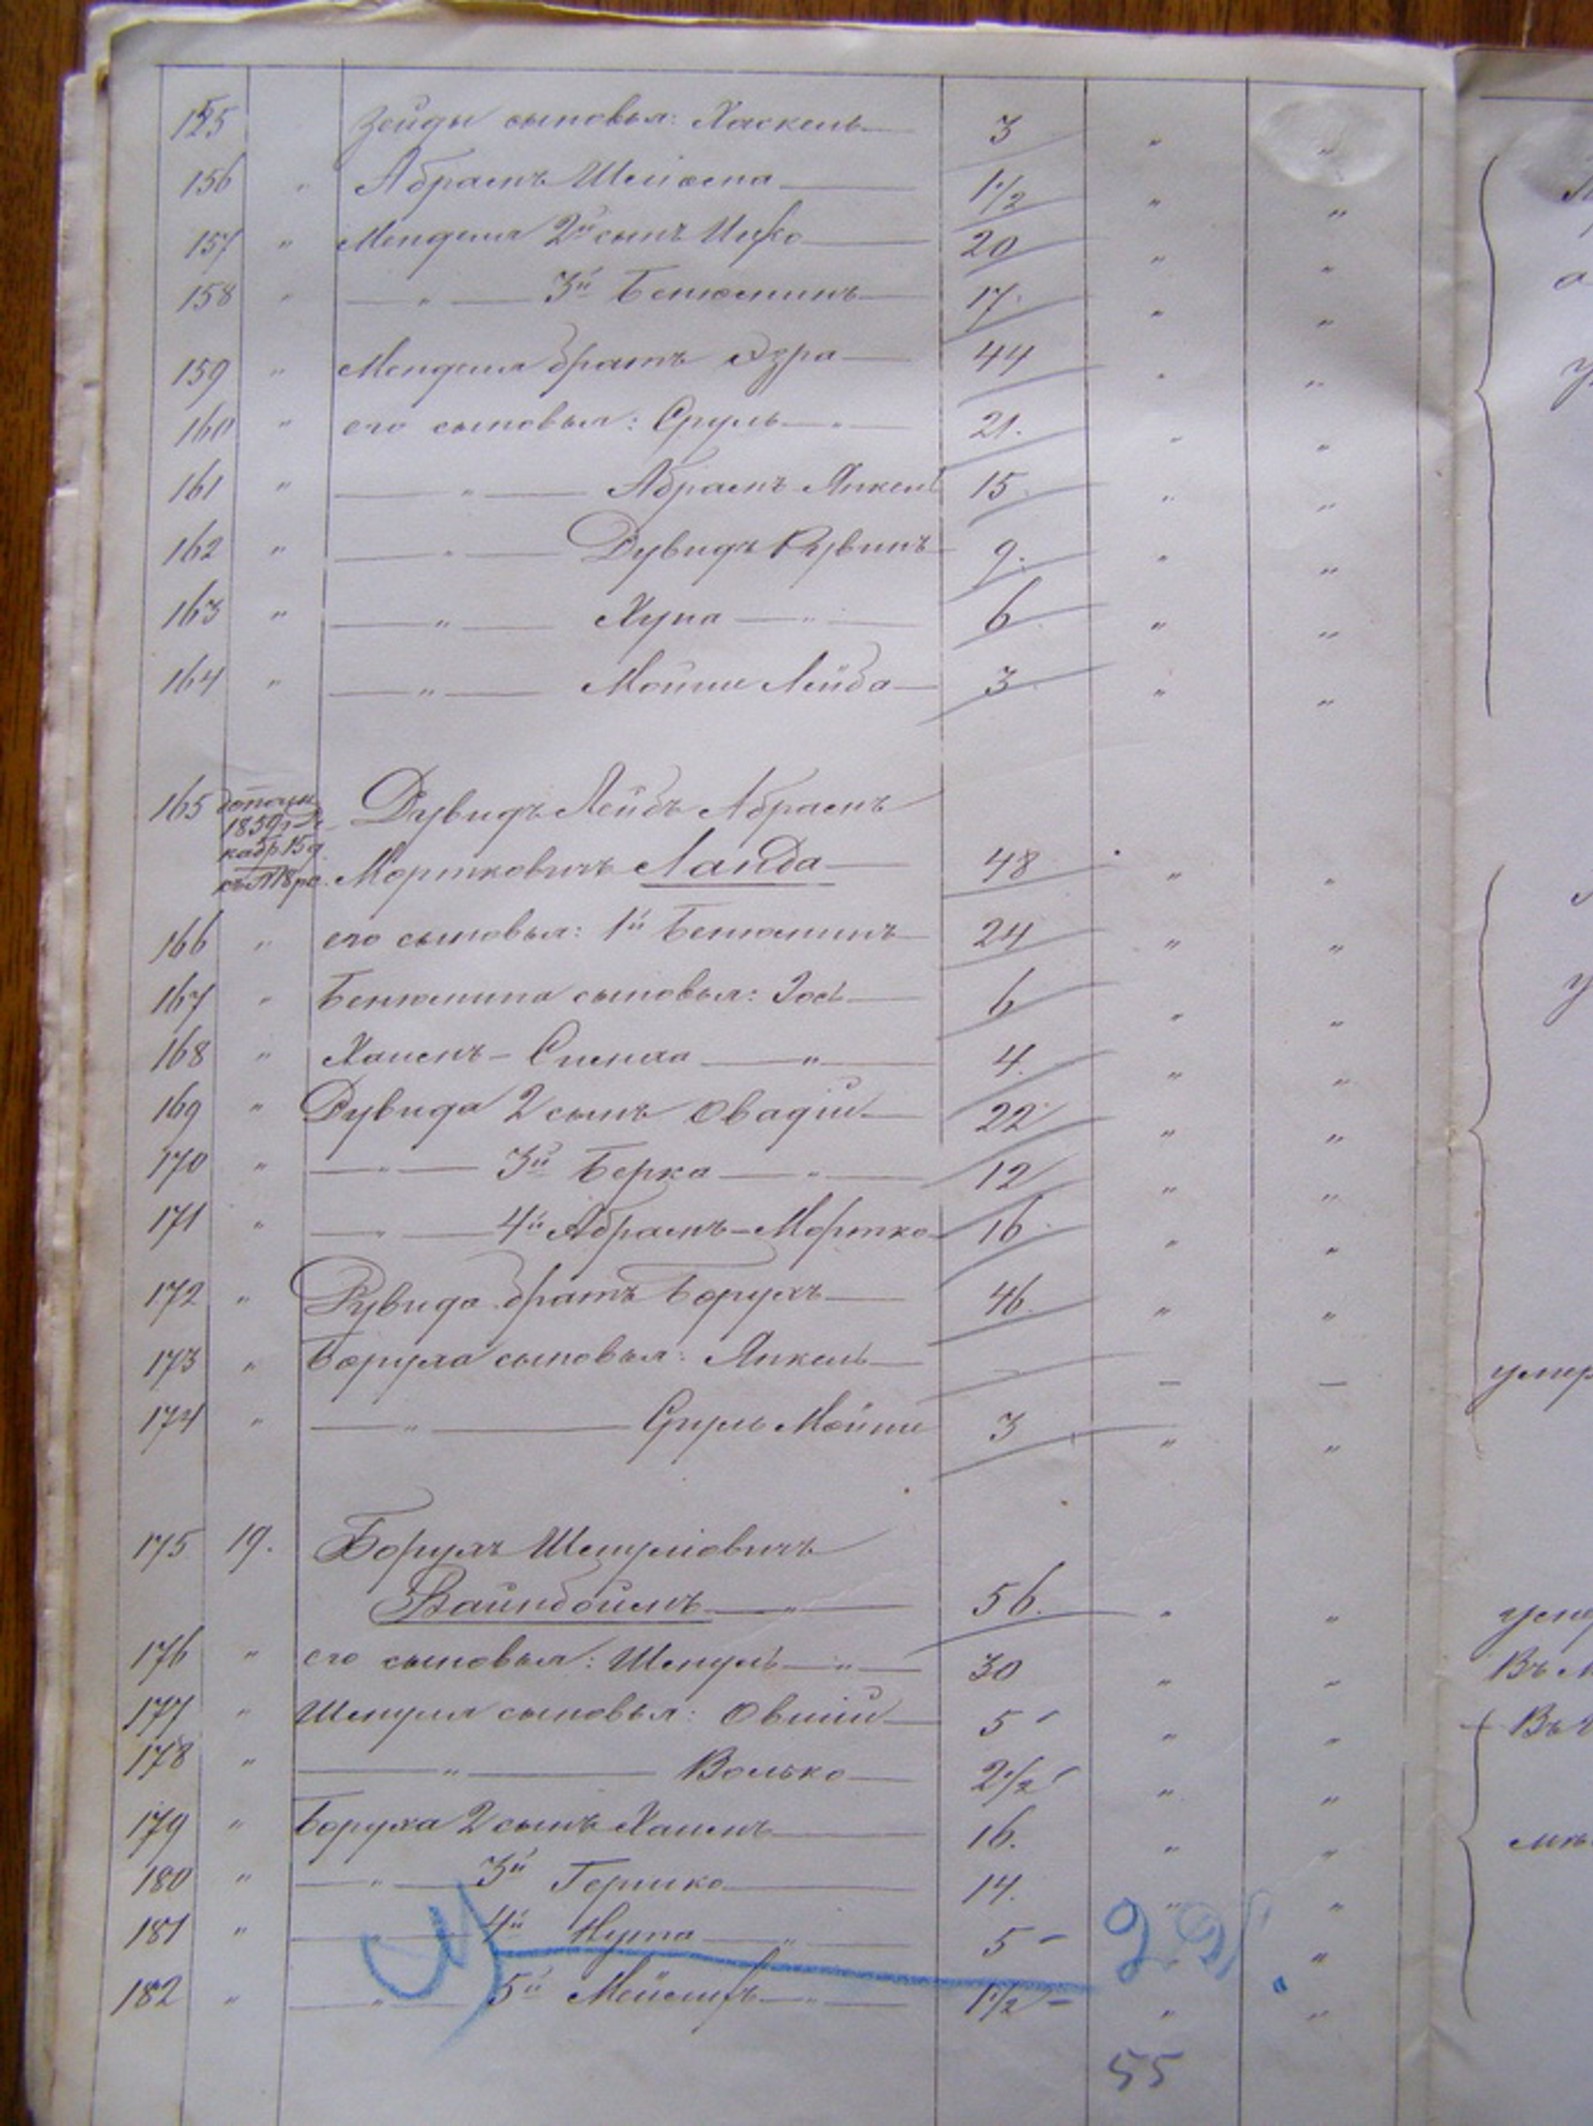 155 Зейды сыновья: Хаскель 3 " "
156 " Абрамъ Шліома 1 1/2 " "
157 " Менделя 2й сынъ Ицко 20 " "
158 " " 3й Беньюминъ 17. " "
159 " Менделя братъ Эзра 44 " "
160 " его сыновья: Сруль " 21. " "
161 " " Абрамъ Янкель 15 " "
162 " " Дувидъ Рувинъ 9. " "
163 " " Хуна " 6 " "
164 " " Мойше Лейба 3 " "
165 Дувидъ Лейбъ Абрамъ
1859 г. Де-
кабр. 15 д.
Мортковичъ Ланда 48 " "
166 " его сыновья: 1й Беньюминъ 24 " "
167 " Беньюмина сыновья: Іось 6 " "
168 " Хаимъ - Симха " 4. " "
169 " Дувида 2 сынъ Овадій 22 " "
170 " " 3й Берко " 12 " "
171 " " 4й Абрамъ-Мортко 16 " "
172 " Дувида братъ Борухъ 46. " "
173 " Боруха сыновья: Янкель — —
174 " " Сруль Мойше 3 " "
175 19. Борухъ Шмуліовичъ
Вайнбоймъ " 56. " "
176 " его сыновья: Шмуль " 30 " "
177 " Шмуля сыновья: Овшій 5 " "
178 " " Волько 2 1/2 " "
179 " Боруха 2 сынъ Хаимъ 16. " "
180 " " 3й Гершко 14. " "
181 " " 4й Нута " 5 "
182 " " 5й " 1 1/2 " "
55